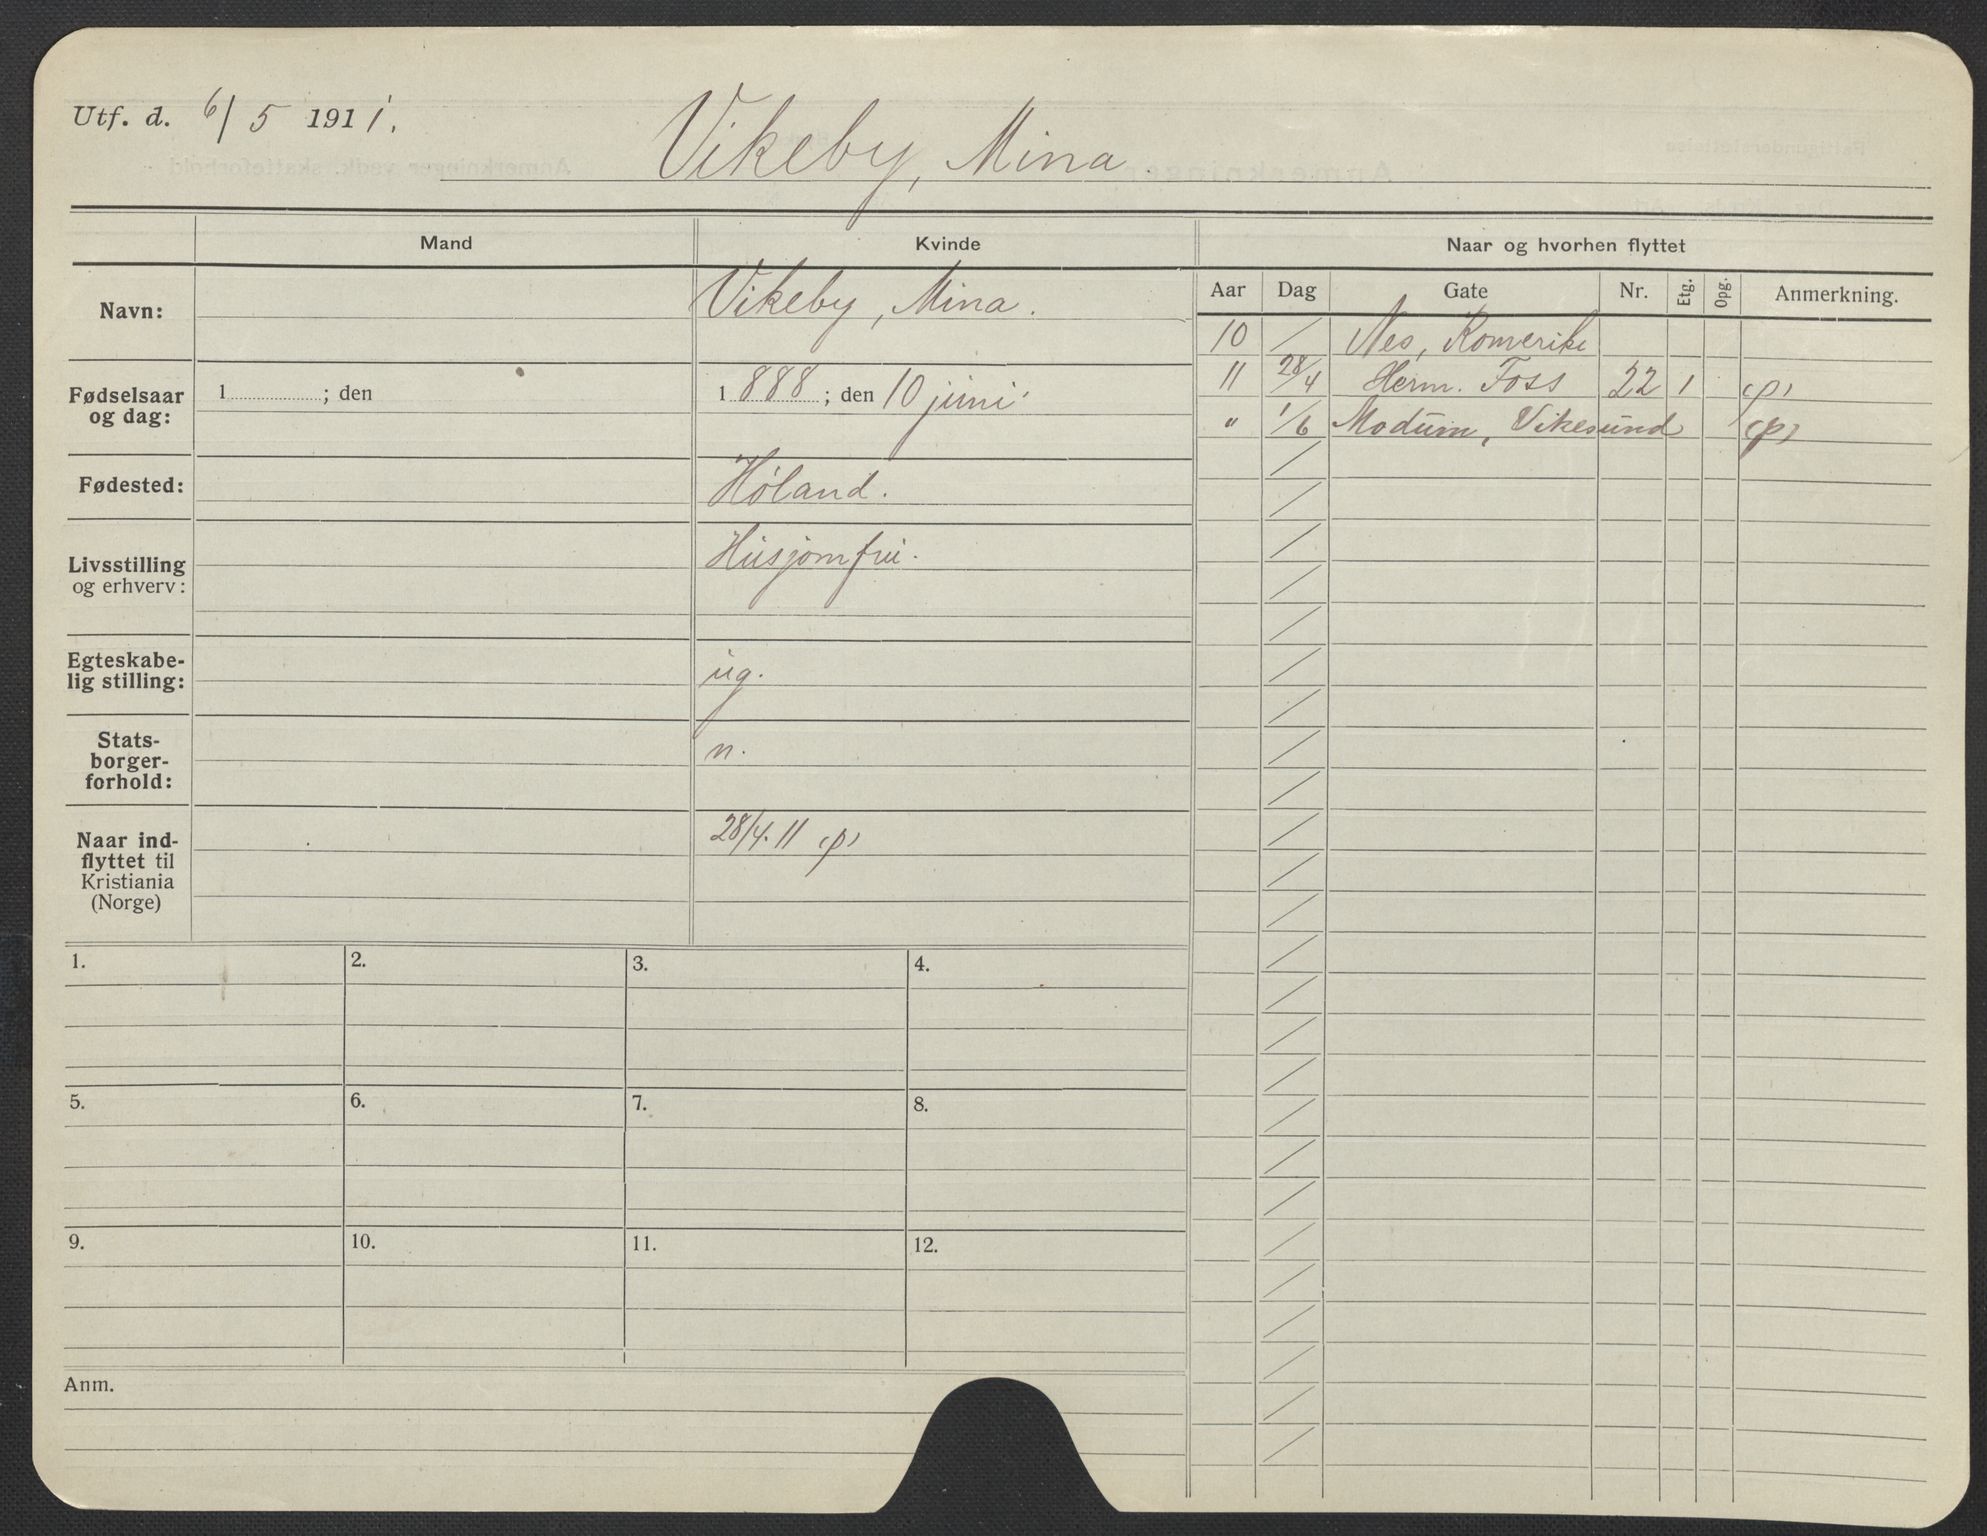 Utf. d. 6/5 1911.
Vikeby, Mina
Mand
Kvinde
Naar og hvorhen flyttet
Navn:
Vikeby, Mina.
Fødselsaar og dag:
1 ; den
1888 ; den 10 juni
Fødested:
Høland.
Livsstilling og erhverv:
Husjomfru.
Egteskabelig stilling:
ug.
Statsborgerforhold:
n.
Naar indflyttet til Kristiania (Norge)
28/4. 11 (p)
Aar Dag Gate Nr. Etg. Opg. Anmerkning.
10 / Nes, Romerike
11 28/4 Herm. Foss 22 1 (p)
" 1/6 Modum, Vikesund (p)
1. 2. 3. 4.
5. 6. 7. 8.
9. 10. 11. 12.
Anm.